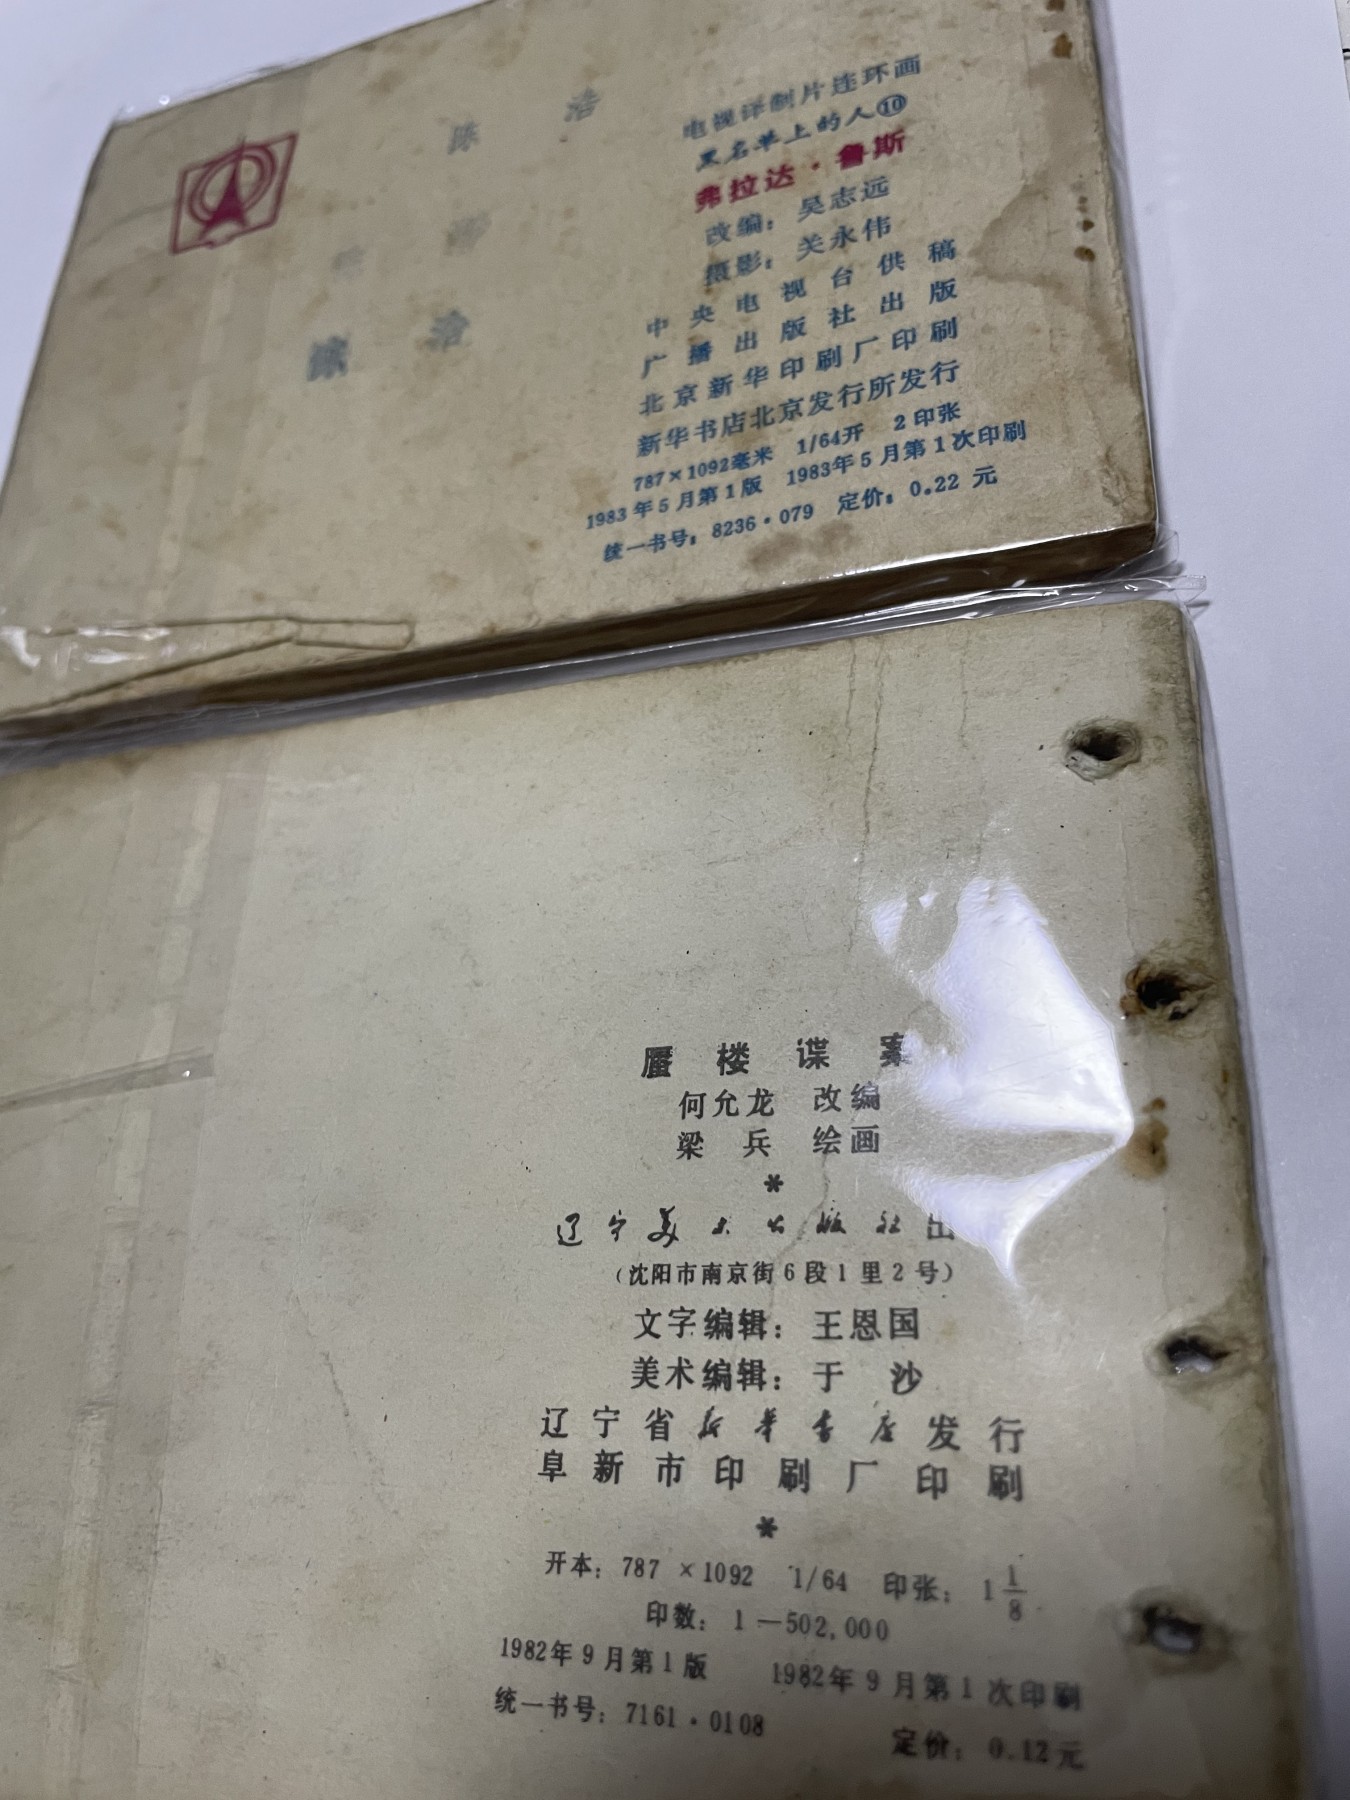 陈 浩
浩
陈 浩
电视译制片连环画
黑名单上的人⑩
弗拉达·鲁斯
改编：吴志远
摄影：关永伟
中央电视台供稿
广播出版社出版
北京新华印刷厂印刷
新华书店北京发行所发行
787×1092毫米 1/64开 2印张
1983年5月第1版 1983年5月第1次印刷
统一书号：8236·079 定价：0.22元
蜃楼谍案
何允龙 改编
梁兵 绘画
*
辽宁美术出版社出
（沈阳市南京街6段1里2号）
文字编辑：王恩国
美术编辑：于沙
辽宁省新华书店发行
阜新市印刷厂印刷
*
开本：787×1092 1/64 印张：1 1/8
印数：1—502,000
1982年9月第1版 1982年9月第1次印刷
统一书号：7161·0108 定价：0.12元